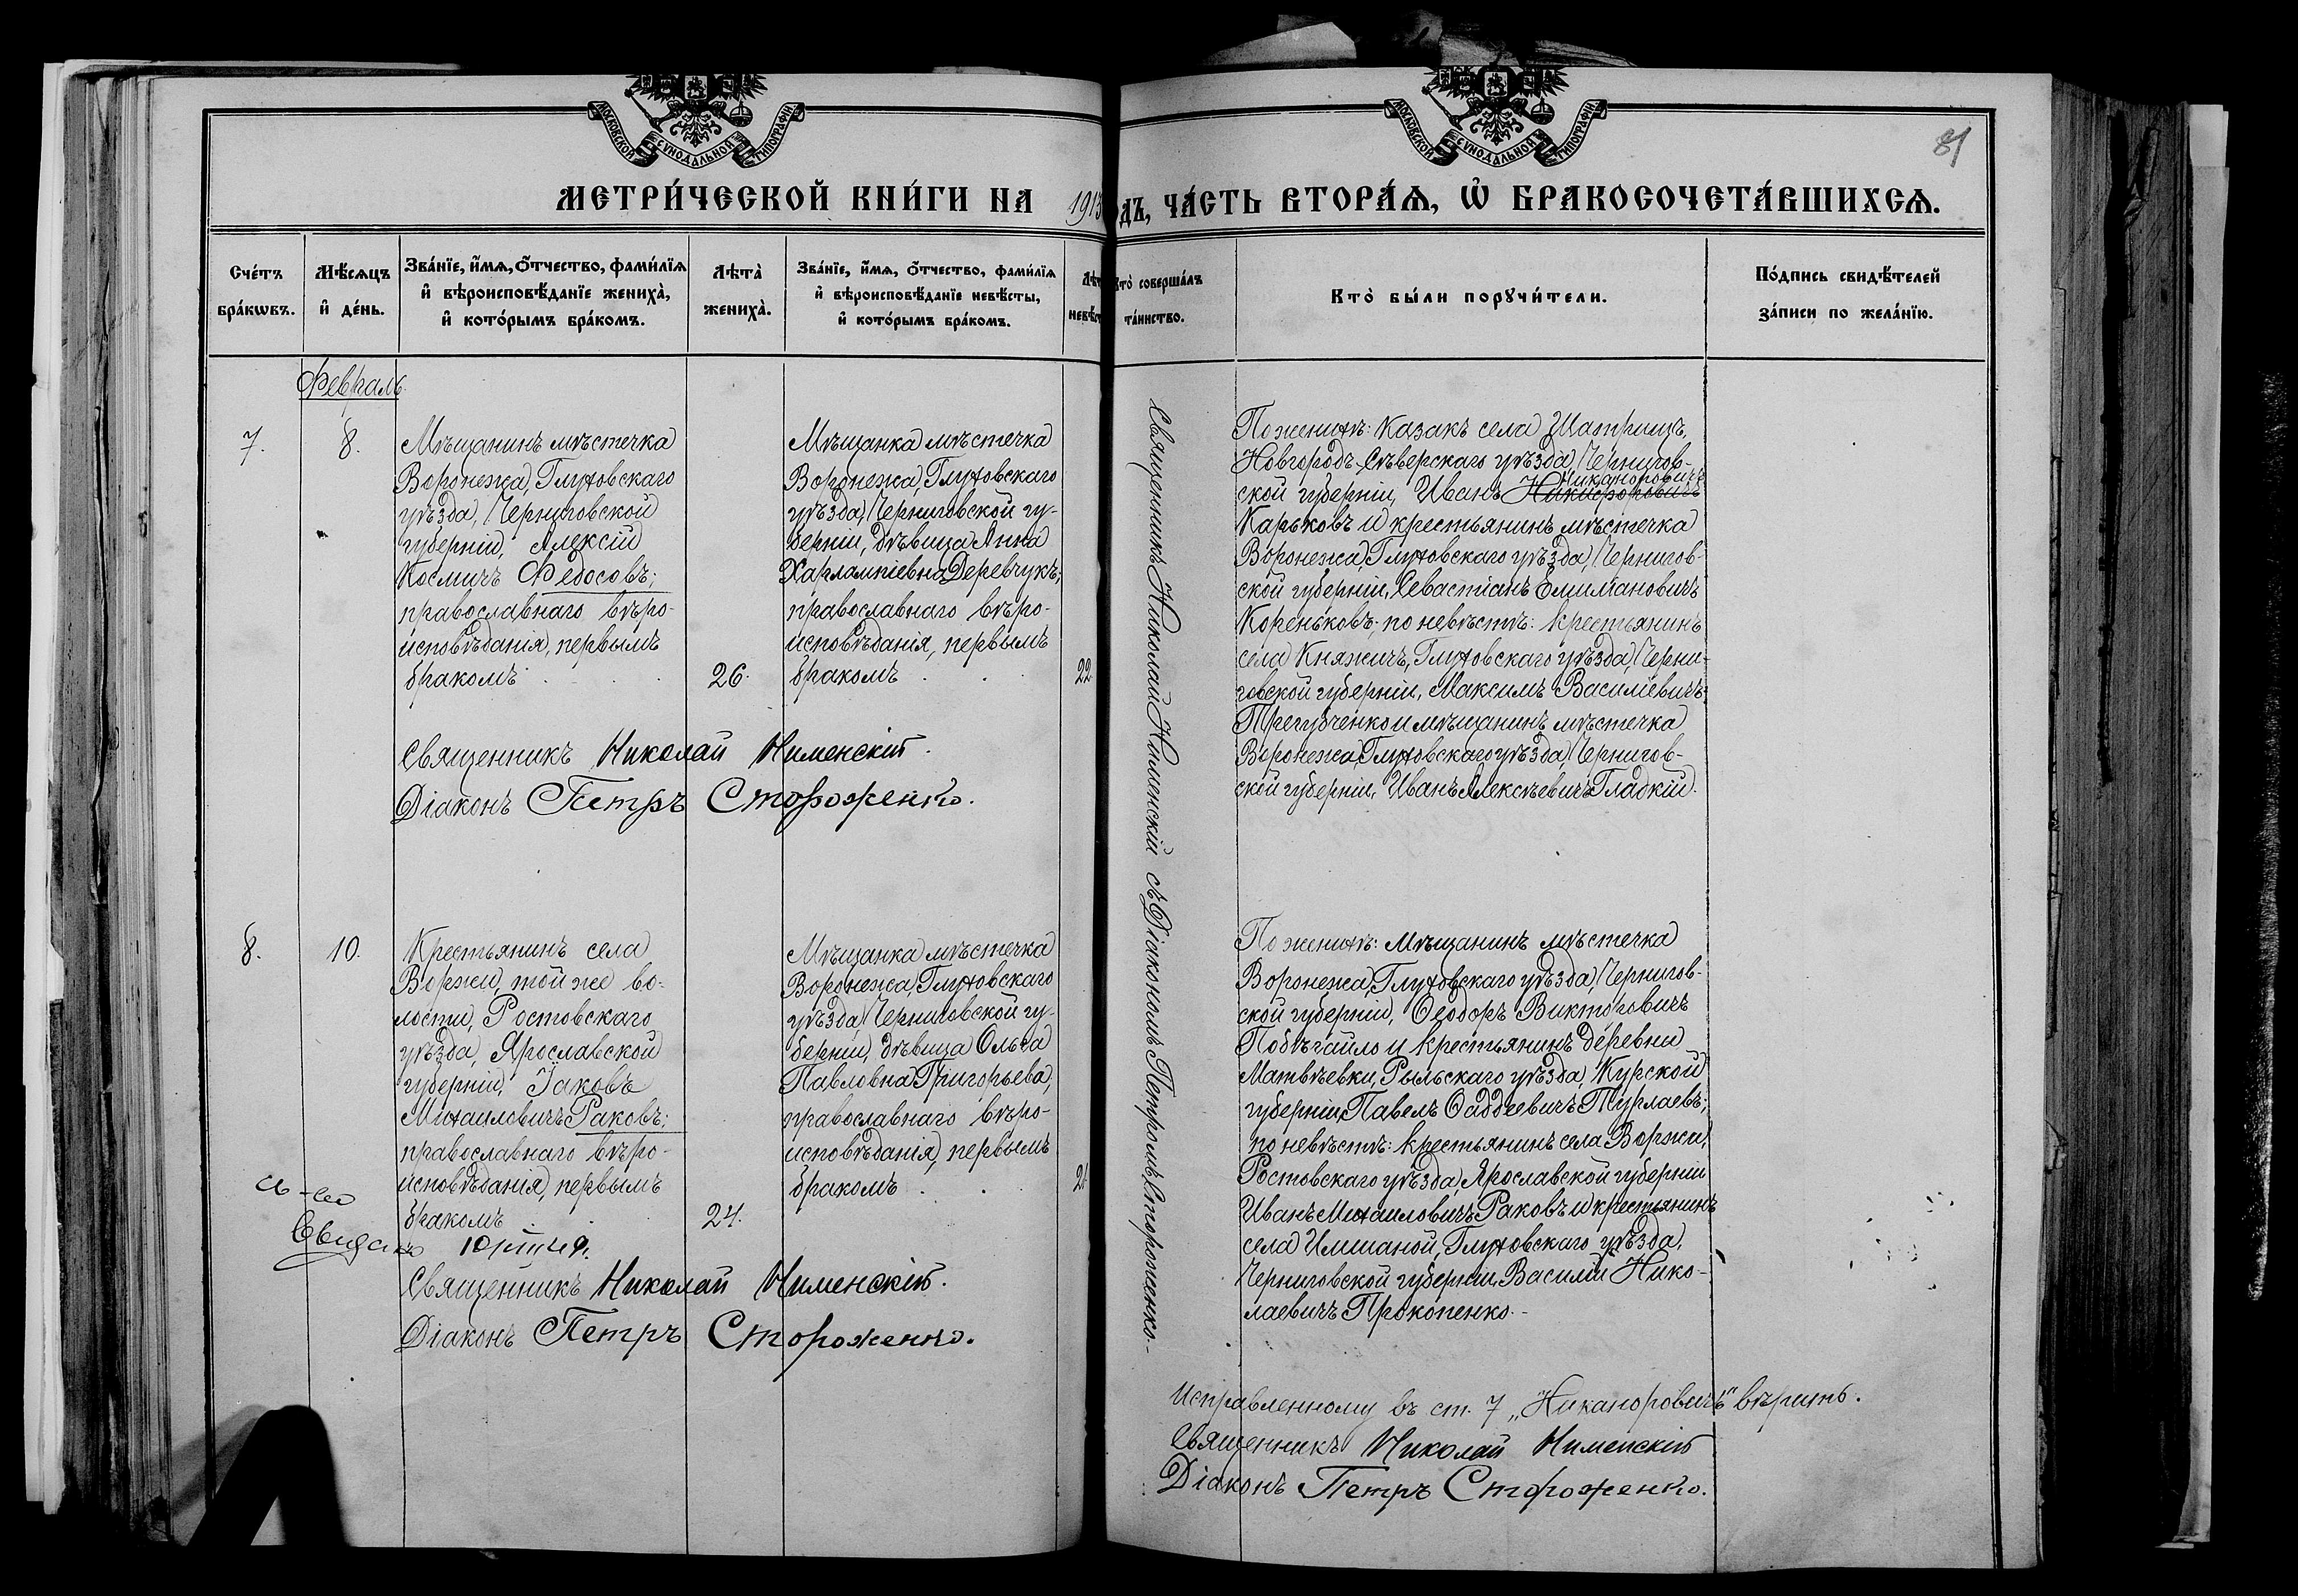 МОСКОВСКОЙ СѴНОДАЛЬНОЙ ТИПОГРАФІИ
МЕТРИ́ЧЕСКОЙ КНИ́ГИ НА 1913
Сче́тъ бра́кѡвъ.
Мѣ́сѧцъ и҆ де́нь.
Зва́нїе, и҆́мѧ, ѻ҆́тчество, фами́лїѧ и҆ вѣроисповѣ́данїе жениха̀, и҆ кото́рымъ бра́комъ.
Лѣта̀ жениха̀.
Зва́нїе, и҆́мѧ, ѻ҆́тчество, фами́лїѧ и҆ вѣроисповѣ́данїе невѣ́сты, и҆ кото́рымъ бра́комъ.
Лѣт
невѣст
Февраль.
7.
8.
Мѣщанинъ мѣстечка
Воронежа, Глуховскаго
уѣзда, Черниговской
губерніи, Алексій
Космичъ Федосовъ;
православнаго вѣро-
исповѣданія, первымъ
бракомъ
26.
Мѣщанка мѣстечка
Воронежа, Глуховскаго
уѣзда, Черниговской гу-
берніи, дѣвица Анна
Харлампіевна Деревчукъ;
православнаго вѣро-
исповѣданія, первымъ
бракомъ
22.
Священникъ Николай Нименскій.
Діаконъ Петръ Стороженко.
8.
10.
Крестьянинъ села
Воржи, той же во-
лости, Ростовскаго
уѣзда, Ярославской
губерніи, Іаковъ
Михаиловичъ Раковъ;
православнаго вѣро-
исповѣданія, первымъ
бракомъ
24.
Мѣщанка мѣстечка
Воронежа, Глуховскаго
уѣзда, Черниговской гу-
берніи, дѣвица Ольга
Павловна Григорьева;
православнаго вѣро-
исповѣданія, первымъ
бракомъ
21
Священникъ Николай Нименскій.
Діаконъ Петръ Стороженко.
МОСКОВСКОЙ СѴНОДАЛЬНОЙ ТИПОГРАФІИ
81
ОДЪ, ЧА́СТЬ ВТОРА́Ѧ, Ѽ БРАКОСОЧЕТА́ВШИХСѦ.
Кто̀ соверша́лъ та́инство.
Кто̀ бы́ли порꙋчи́тели.
По́дпись свидѣ́телей за́писи по жела́нїю.
Священникъ Николай Нименскій съ Діакономъ Петромъ Стороженко.
По женихѣ: казакъ села Шатрищъ,
Новгородъ-Сѣверскаго уѣзда, Чернигов-
Никаноровичъ
ской губерніи, Иванъ Никифоровичъ
Карьковъ и крестьянинъ мѣстечка
Воронежа, Глуховскаго уѣзда, Чернигов-
ской губерніи, Севастіанъ Емиліановичъ
Кореньковъ; по невѣстѣ: крестьянинъ
села Княжичъ, Глуховскаго уѣзда, Черни-
говской губерніи, Максимъ Василіевичъ
Трегубченко и мѣщанинъ мѣстечка
Воронежа, Глуховскаго уѣзда, Чернигов-
ской губерніи, Иванъ Алексѣевичъ Гладкій.
По женихѣ: мѣщанинъ мѣстечка
Воронежа, Глуховскаго уѣзда, Чернигов-
ской губерніи, Ѳеодоръ Викторовичъ
Побѣгайло и крестьянинъ деревни
Матвѣевки, Рыльскаго уѣзда, Курской
губерніи, Павелъ Ѳаддеевичъ Турлаевъ;
по невѣстѣ: крестьянинъ села Воржи,
Ростовскаго уѣзда, Ярославской губерніи
Иванъ Михаиловичъ Раковъ и крестьянинъ
села Имшаной, Глуховскаго уѣзда,
Черниговской губерніи, Василій Нико-
лаевичъ Прокопенко.
Исправленному въ ст. 7 „Никаноровичъ" вѣрить.
Священникъ Николай Нименскій
Діаконъ Петръ Стороженко.